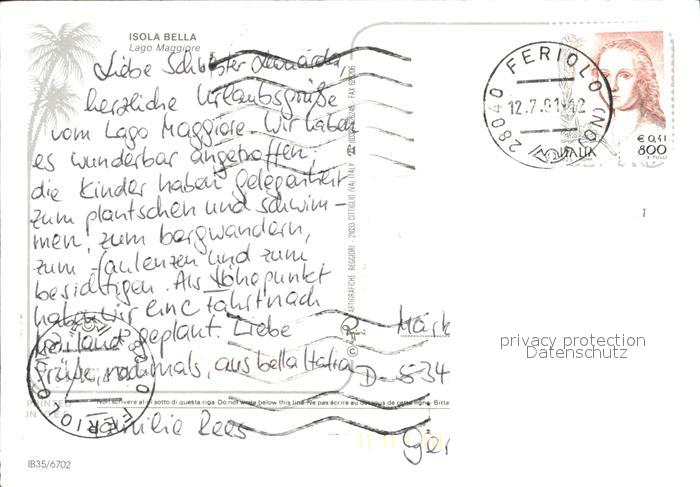 ISOLA BELLA
Lago Maggiore
Liebe Schwester Leonarda,
herzliche Urlaubsgrüße
vom Lago Maggiore. Wir haben
es wunderbar angetroffen,
die Kinder haben gelegenheit
zum plantschen und schwim-
men, zum bergwandern,
zum faulenzen und zum
besichtigen. Als Höhepunkt
haben wir eine fahrt nach
Mailand geplant. Liebe
Grüße, nochmals, aus bella Italia
Familie Rees
28040 FERIOLO (NO)
12.7.01-12
ITALIA
€ 0,41
800
T. TULLI
1
ARTIGRAFICHE REGGIORI 21033 CITTIGLIO (VA) ITALY
Märk
D - 534
Ger
privacy protection
Datenschutz
Non scrivere al di sotto di questa riga Do not write below this line Ne pas écrire au dessous de cette ligne Bitte
PRINTED
IN ITALY
FERIOLO
IB35/6702